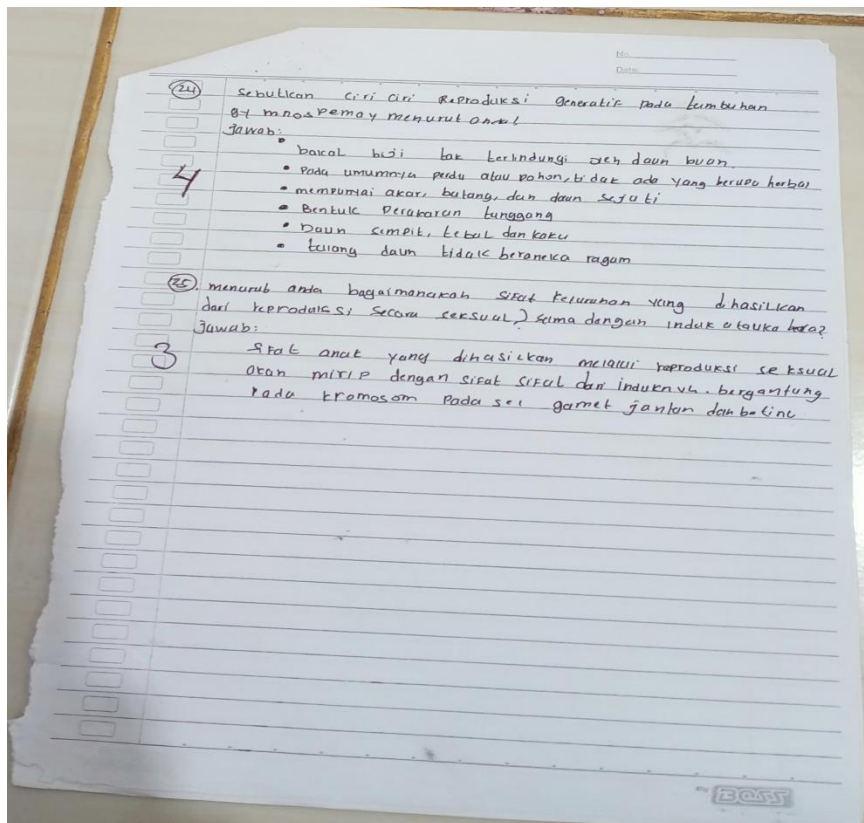 No.
Date:
24 Sebutkan ciri ciri Reproduksi generatif pada tumbuhan
gymnospemay menurut anda!
Jawab:
• bakal biji tak terlindungi oleh daun buah.
4 • Pada umumnya perdu atau pohon, tidak ada yang berupa herba
• mempunyai akar, batang, dan daun sejati
• Bentuk Perakaran tunggang
• Daun sempit, tebal dan kaku
• tulang daun tidak beraneka ragam
25. menurut anda bagaimanakah sifat keturunan yang dihasilkan
dari reproduksi secara seksual? sama dengan induk atauka beda?
Jawab:
3 Sifat anak yang dihasilkan melalui reproduksi seksual
akan mirip dengan sifat sifat dari induknya. bergantung
Pada kromosom Pada sel gamet jantan dan betina
BOSS